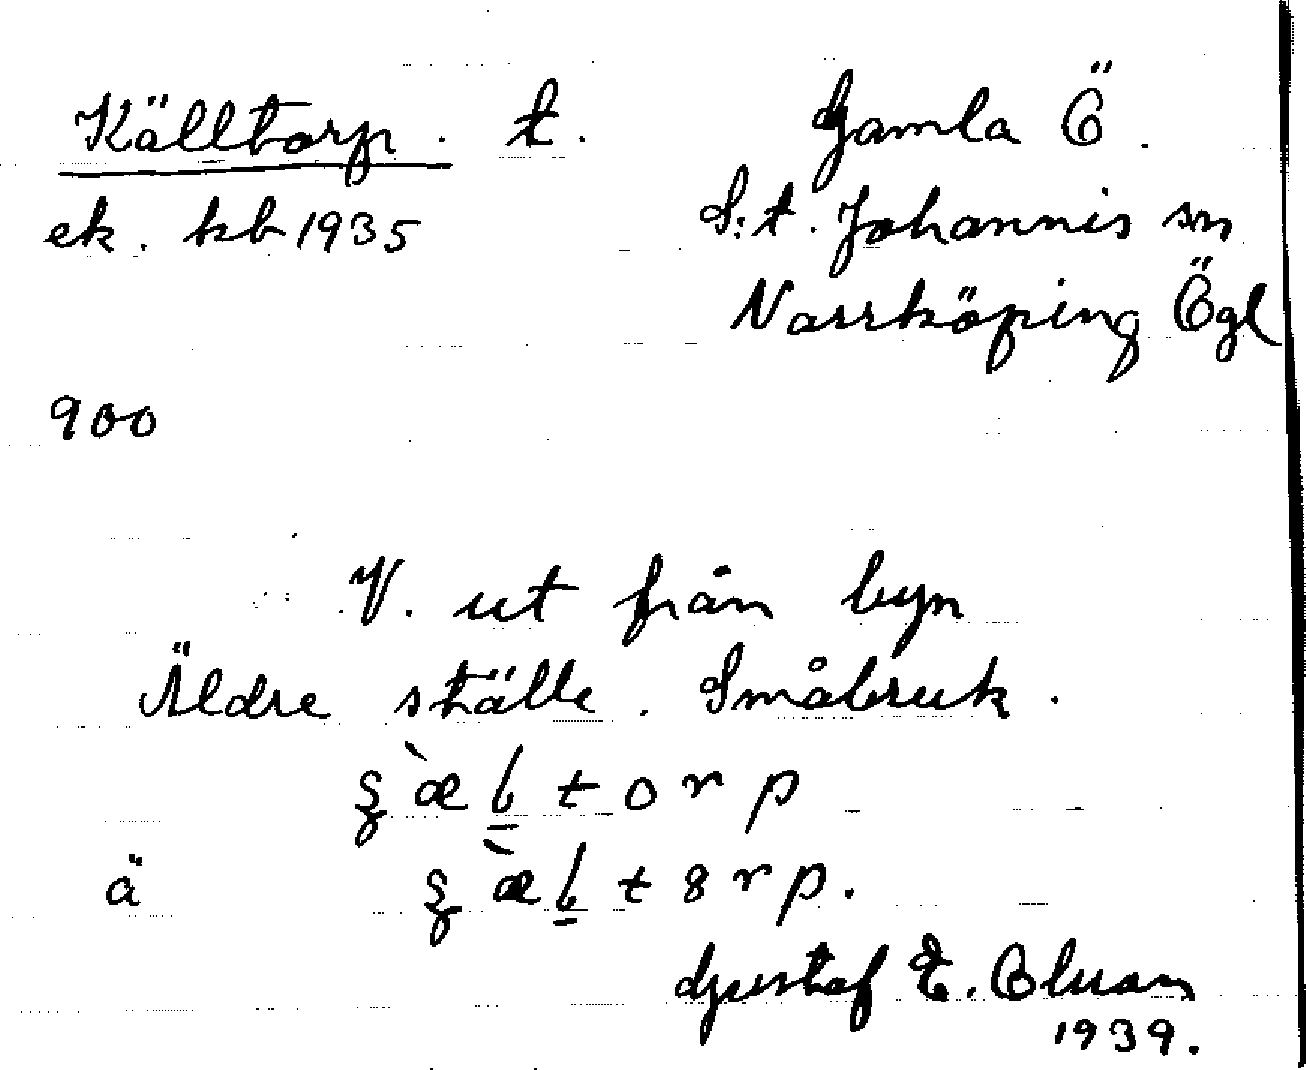 Källtorp. t. Gamla Ö.
ek. kb 1935 S:t. Johannis sn
Norrköping Ögl
900
V. ut från byn
Äldre ställe. Småbruk.
t o r p
ä t 8 r p.
Gustaf E.
1939.